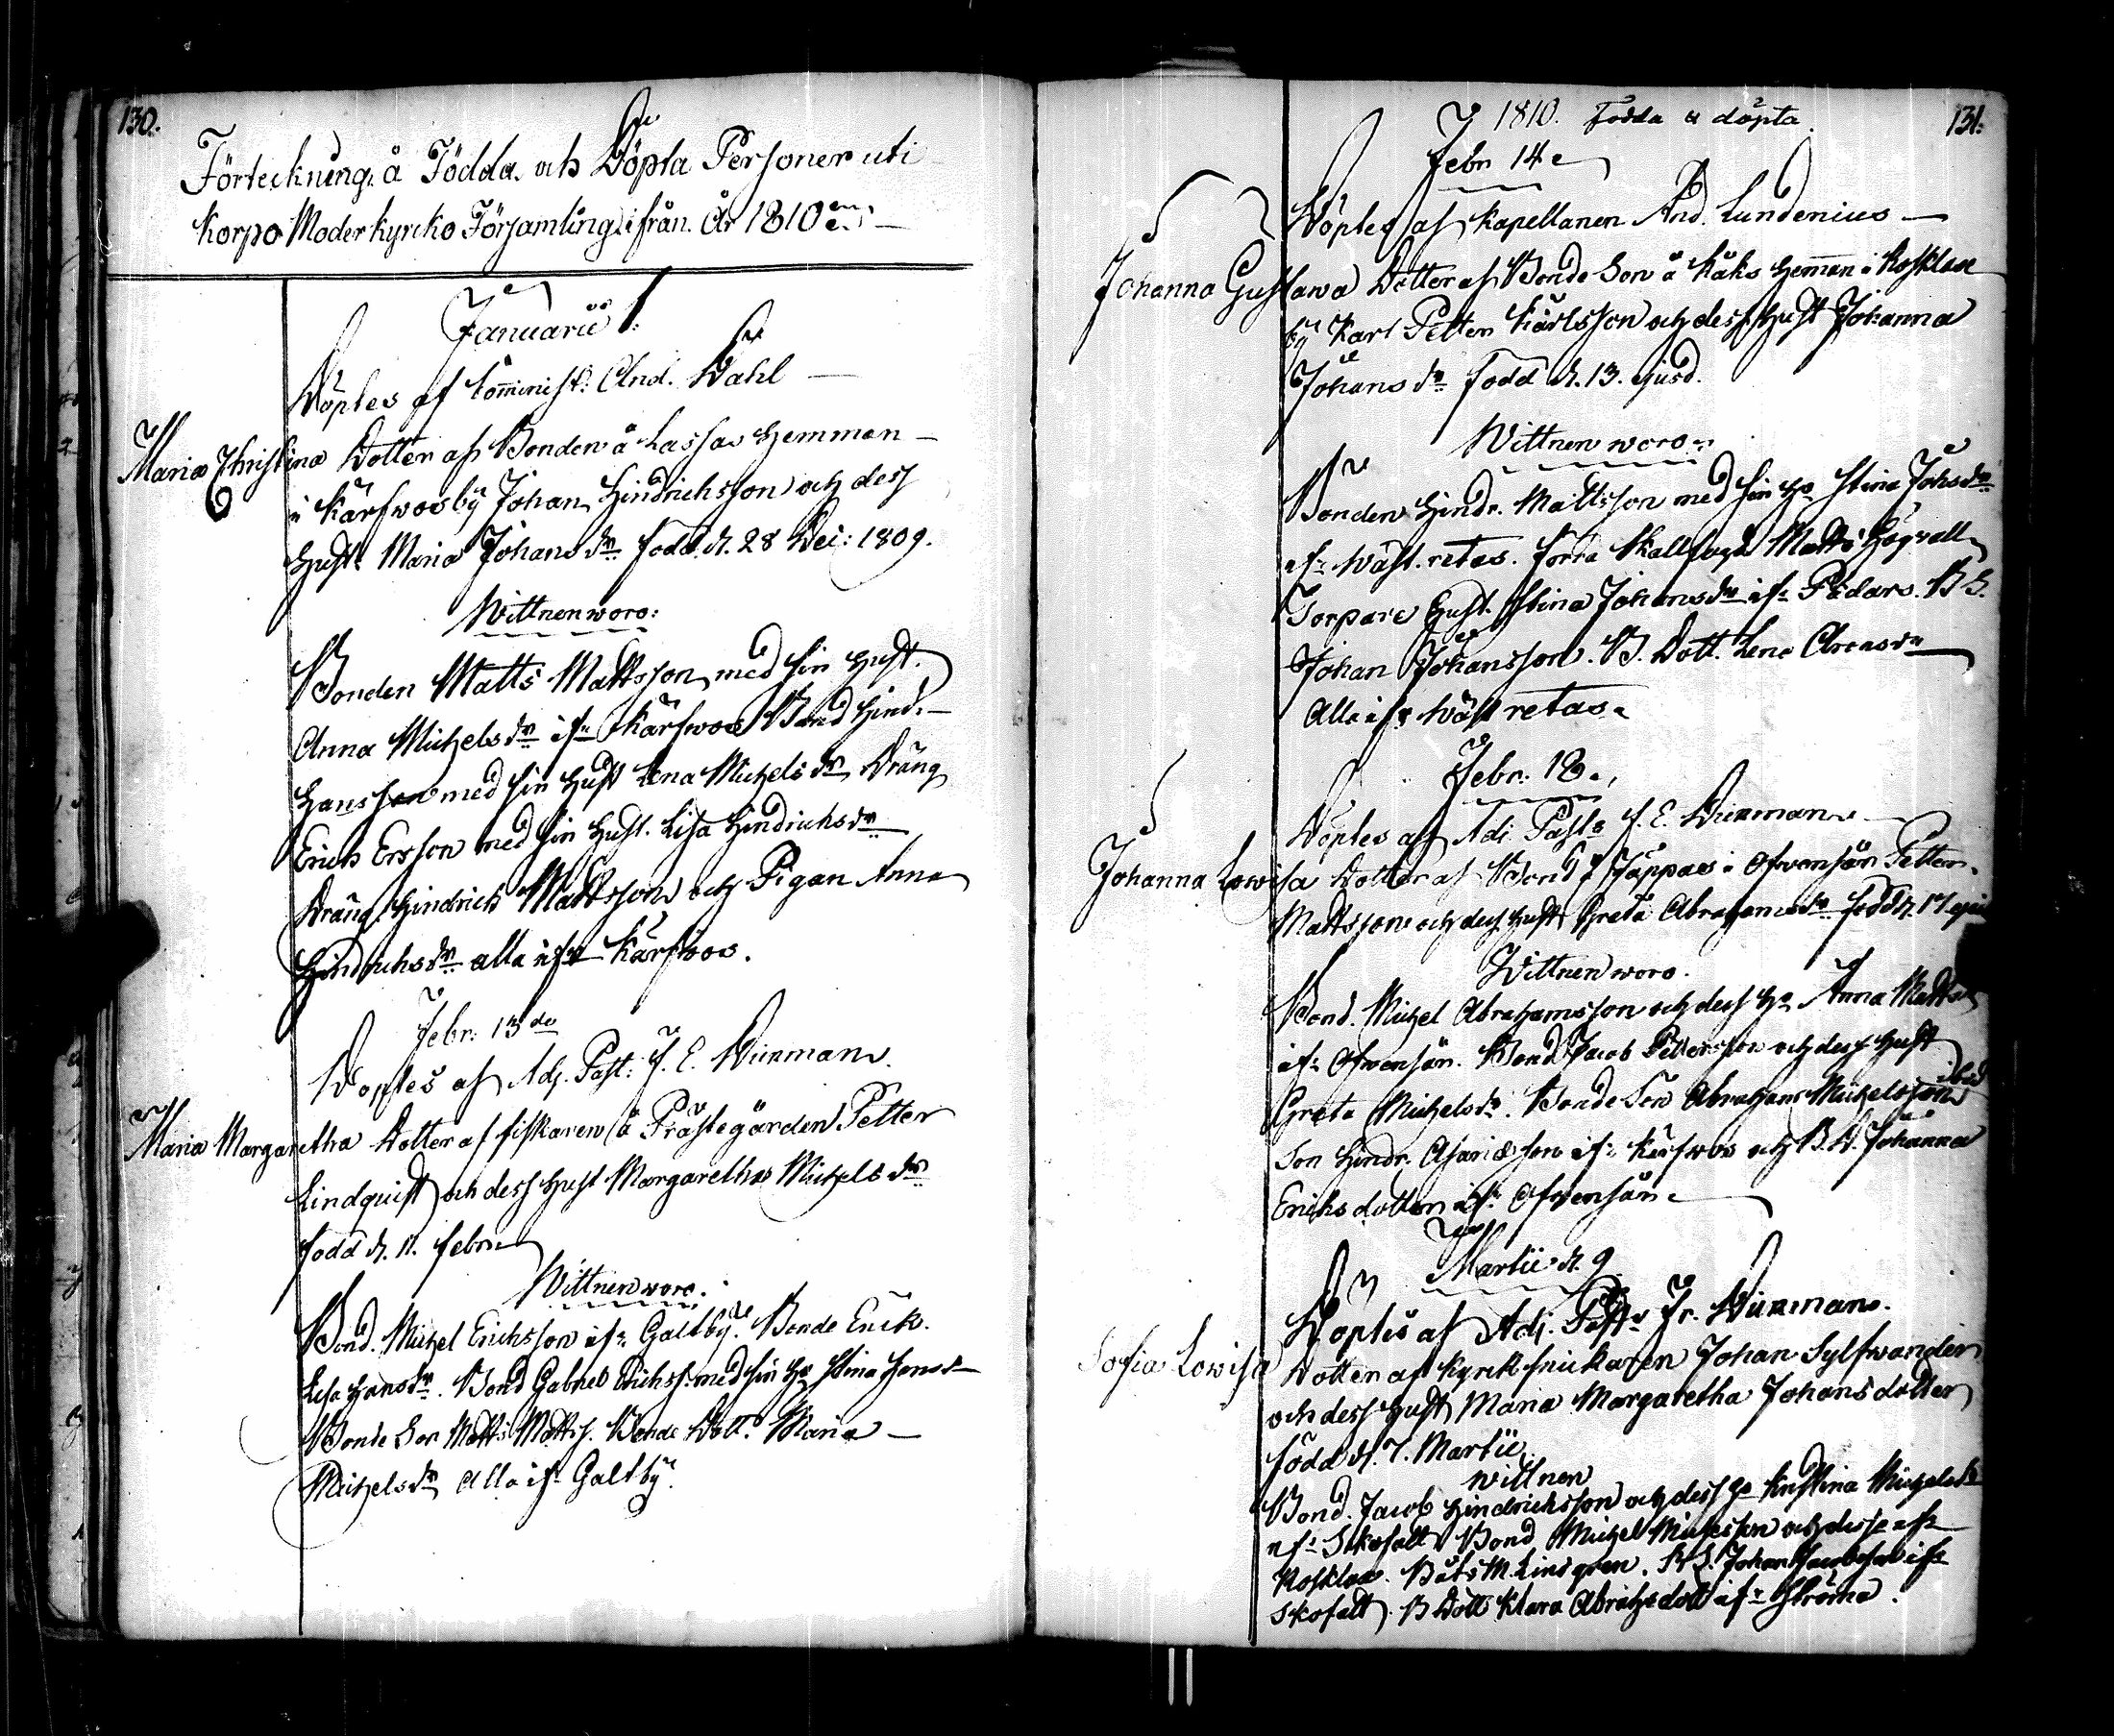 130.
Förteckning å Födda och Döpta Personer uti
Korpo Moderkyrcko Församling ifrån År 1810
Januarii 1.
Döptes af Comminist: And. Dahl
Maria Christina Dotter af Bonden å Lassas Hemman
i Kärfwos by Johan Hindrichsson och dess
Hust. Maria Johans dr född d. 28 Dec: 1809.
Wittnen woro:
Bonden Matts Mattsson med sin Hust.
Anna Michels dr ifr Kärfwos Bond Hind.
Hansson med sin Hust Lena Michels dr Dräng
Erich Ersson med sin Hust. Lisa Hindrichs dr
Dräng. Hindrich Mattsson och Pigan Anna
Hindrichs dr alla ifr Kärfwos.
Febr: 13 de
Döptes af Adj. Past: F. E. Wirman.
Maria Margaretha Dotter af fiskaren å Prästegården Petter
Lindquist och dess Hust Margaretha Michels dr
född d. 11. febr
Wittnen woro.
Bond. Michel Erichsson ifr Galtby. Bonde Enck.
Lisa Hans dr. Bond Gabriel Erichss. med sin Ho Stina Hans d
Bonde Son Matts Matts. Bonde Dott. Maria
Michels dr Alla ifr Galtby.
131.
1810. Födda & döpta
Febr 14
Döptes af Kapellanen And. Lundenius
Johanna Gustawa Dotter af Bonde Son å Käks Hemman i Rosklax
by Karl Petter Karlsson och dess Hust Johanna
Johans dr född d. 13. ejusd.
Wittnen woro
Bonden Hindr. Mattsson med sin Ho Stina Johs dr
ifr Wäst. retas. Matts Högvall
Torpare Hust. Stina Johans dr ifr Pädars. B S.
Johan Johansson. B. Dott. Lena
Alla ifr Wäst retas
Febr: 18.
Döptes af Adj. Past F. E. Wirman
Johanna Lowisa Dotter af Bond å Jäppas i Ofwensår Petter
Mattsson och dess Hust Greta Abrahams dr född d. 17
Wittnen woro.
Bond. Michel Abrahamsson och dess Ho Anna Matts
ifr Ofwensår. Bond Jacob Pettersson och dess Hust
Greta Michels dr. Bonde Son Abraham Michelsson ibid
Son Hindr. Asariæson ifr Kärfwos och B. D. Johanna
Erichs dotter ifr Ofwensår
Martii d. 9
Döptes af Adj. Past Fr. Wirman.
Sofia Lowisa Dotter af Kyrksnickaren Johan Sylfwander
och dess Hust Maria Margaretha Johans dotter
född d. 7. Martii
Wittnen
Bond. Jacob Hindrichsson och dess Ho Kristina Michels dr
ifr Skofalt Bond Michel och dess ifr
Rosklax. Båts M. Lindgren. B S. Johan Jacobson ifr
Skofalt. B Dott Klara Abrahs dott ifr Ströma.